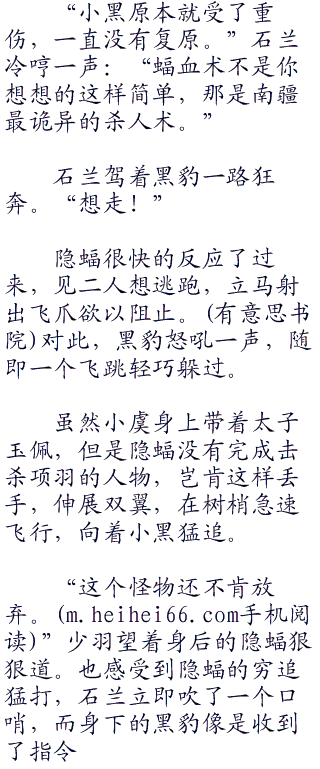 “小黑原本就受了重
伤，一直没有复原。”石兰
冷哼一声：“蝠血术不是你
想想的这样简单，那是南疆
最诡异的杀人术。”
石兰驾着黑豹一路狂
奔。“想走！”
隐蝠很快的反应了过
来，见二人想逃跑，立马射
出飞爪欲以阻止。(有意思书
院)对此，黑豹怒吼一声，随
即一个飞跳轻巧躲过。
虽然小虞身上带着太子
玉佩，但是隐蝠没有完成击
杀项羽的人物，岂肯这样丢
手，伸展双翼，在树梢急速
飞行，向着小黑猛追。
“这个怪物还不肯放
弃。(m.heihei66.com手机阅
读)”少羽望着身后的隐蝠狠
狠道。也感受到隐蝠的穷追
猛打，石兰立即吹了一个口
哨，而身下的黑豹像是收到
了指令